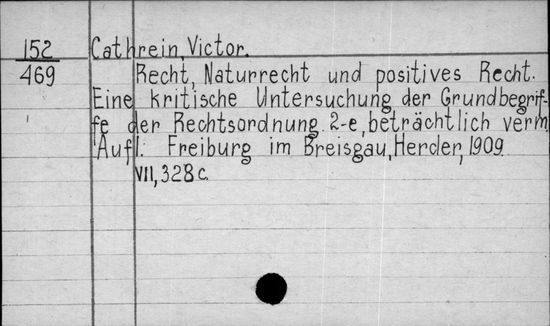 152 Cathrein Victor.
469 Recht, Naturrecht und positives Recht.
Eine kritische Untersuchung der Grundbegrif-
fe der Rechtsordnung. 2-e, beträchtlich verm.
Aufl. Freiburg im Breisgau, Herder, 1909.
VII, 328 c.